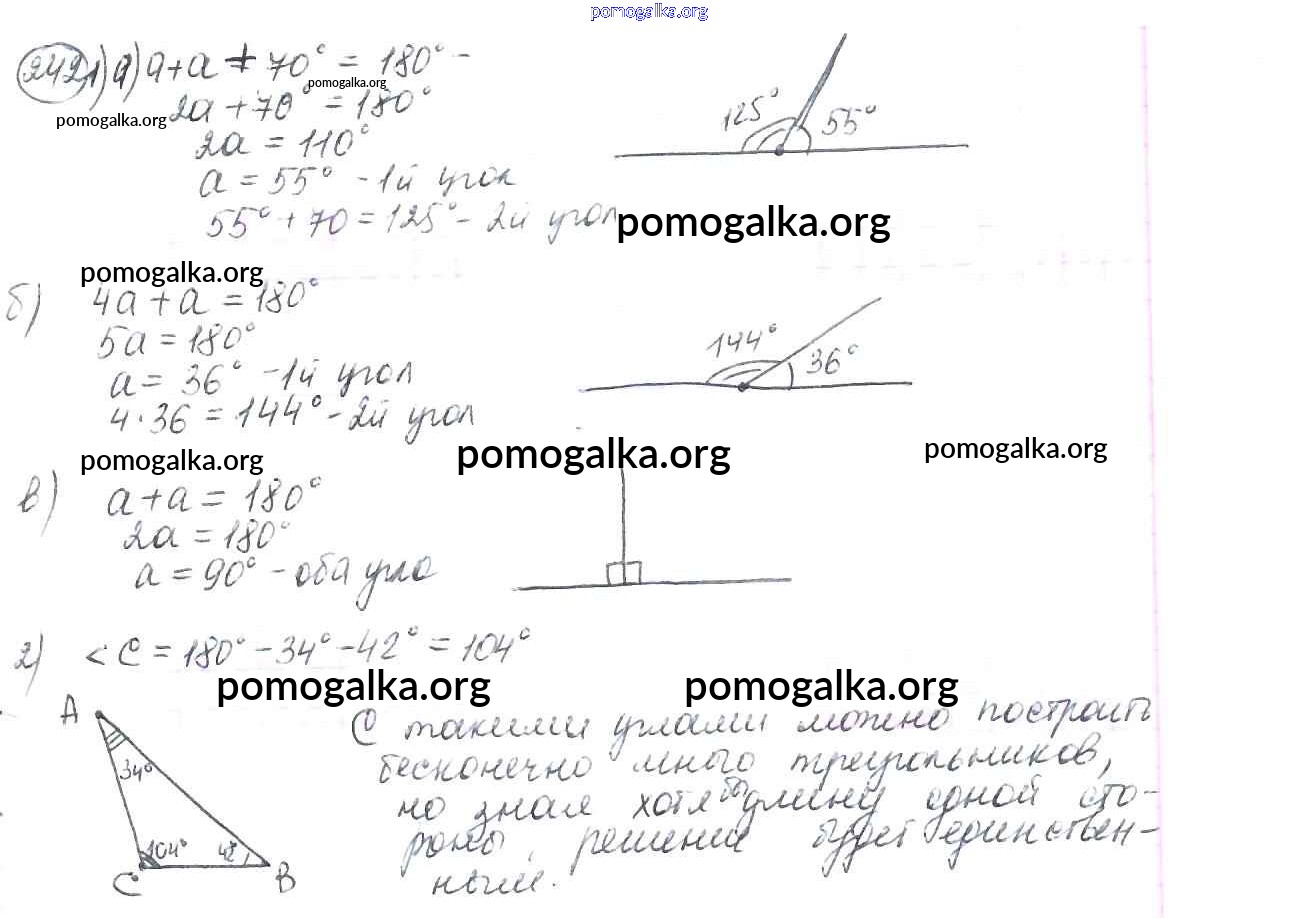 pomogalka.org
242 1) а) a + a + 70° = 180° -
pomogalka.org
2a + 70° = 180°
pomogalka.org
2a = 110°
a = 55° - 1й угол
55° + 70 = 125° - 2й угол
125° 55°
pomogalka.org
pomogalka.org
б) 4a + a = 180°
5a = 180°
a = 36° - 1й угол
4 · 36 = 144° - 2й угол
144° 36°
pomogalka.org
pomogalka.org
pomogalka.org
в) a + a = 180°
2a = 180°
a = 90° - оба угла
2) < C = 180° - 34° - 42° = 104°
pomogalka.org
pomogalka.org
A
34°
104° 42°
C B
С такими углами можно построить
бесконечно много треугольников,
но зная хотя бы длину одной сто-
роны, решение будет единствен-
ным.